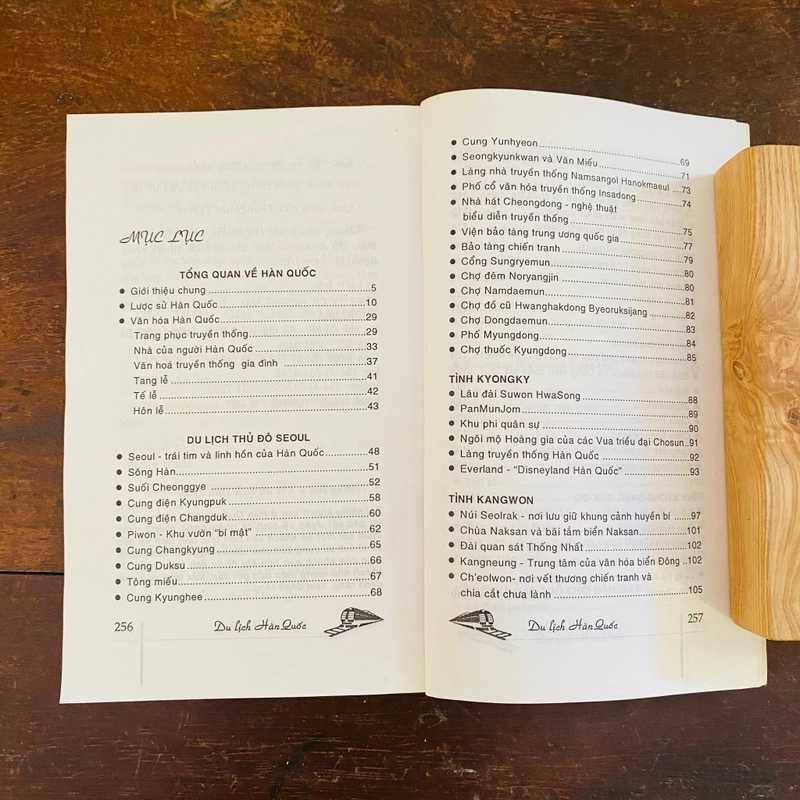 MỤC LỤC
TỔNG QUAN VỀ HÀN QUỐC
● Giới thiệu chung ........ 5
● Lược sử Hàn Quốc ........ 10
● Văn hóa Hàn Quốc ........ 29
Trang phục truyền thống ........ 29
Nhà của người Hàn Quốc ........ 33
Văn hoá truyền thống gia đình ........ 37
Tang lễ ........ 41
Tế lễ ........ 42
Hôn lễ ........ 43
DU LỊCH THỦ ĐÔ SEOUL
● Seoul - trái tim và linh hồn của Hàn Quốc ........ 48
● Sông Hàn ........ 51
● Suối Cheonggye ........ 52
● Cung điện Kyungpuk ........ 58
● Cung điện Changduk ........ 60
● Piwon - Khu vườn “bí mật” ........ 62
● Cung Changkyung ........ 65
● Cung Duksu ........ 66
● Tông miếu ........ 67
● Cung Kyunghee ........ 68
256 Du lịch Hàn Quốc
● Cung Yunhyeon ........ 69
● Seongkyunkwan và Văn Miếu ........ 71
● Làng nhà truyền thống Namsangol Hanokmaeul ... 73
● Phố cổ văn hóa truyền thống Insadong ........ 74
● Nhà hát Cheongdong - nghệ thuật
biểu diễn truyền thống ........ 75
● Viện bảo tàng trung ương quốc gia ........ 77
● Bảo tàng chiến tranh ........ 79
● Cổng Sungryemun ........ 80
● Chợ đêm Noryangjin ........ 80
● Chợ Namdaemun ........ 81
● Chợ đồ cũ Hwanghakdong Byeoruksijang ........ 82
● Chợ Dongdaemun ........ 83
● Phố Myungdong ........ 84
● Chợ thuốc Kyungdong ........ 85
TỈNH KYONGKY
● Lâu đài Suwon HwaSong ........ 88
● PanMunJom ........ 89
● Khu phi quân sự ........ 90
● Ngôi mộ Hoàng gia của các Vua triều đại Chosun . 91
● Làng truyền thống Hàn Quốc ........ 92
● Everland - “Disneyland Hàn Quốc” ........ 93
TỈNH KANGWON
● Núi Seolrak - nơi lưu giữ khung cảnh huyền bí ...... 97
● Chùa Naksan và bãi tắm biển Naksan ........ 101
● Đài quan sát Thống Nhất ........ 102
● Kangneung - Trung tâm của văn hóa biển Đông .. 102
● Ch'eolwon- nơi vết thương chiến tranh và
chia cắt chưa lành ........ 105
Du lịch Hàn Quốc 257